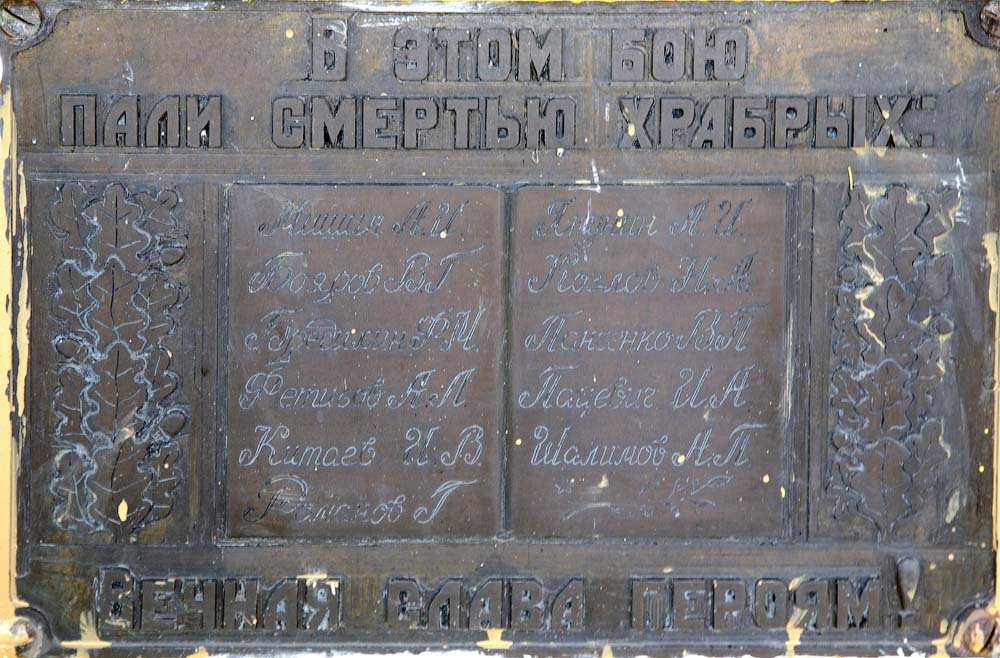 В ЭТОМ БОЮ
ПАЛИ СМЕРТЬЮ ХРАБРЫХ:
Мишин А.И.
Бояров В Г
Ф.М.
Фетисов А.Л.
Китаев И.В
Романов Г
А И.
Козлов Н.А.
Панченко В П
Пацевич И.А.
Шалимов А.П
ВЕЧНАЯ СЛАВА ГЕРОЯМ!